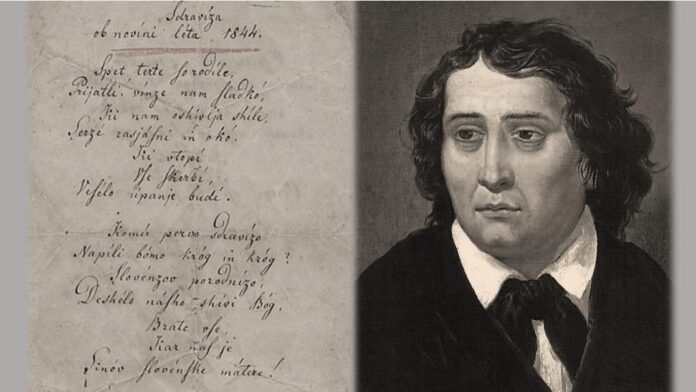 Sdravíza
ob novíni léta 1844.
Spet terte so rodíle,
Prijatli! vínze nam sladkó,
Ki nam oshivlja shíle,
Serzé rasjásni in okó,
Ki vtopí
Vse skerbí,
Vesélo úpanje budí.
Komú pervo sdravízo
Napíli bómo króg in króg?
Slovénzov porodnízo,
Deshélo násho shívi Bóg,
Brate vse
Kar nas je
Sinóv slovénske mátere!